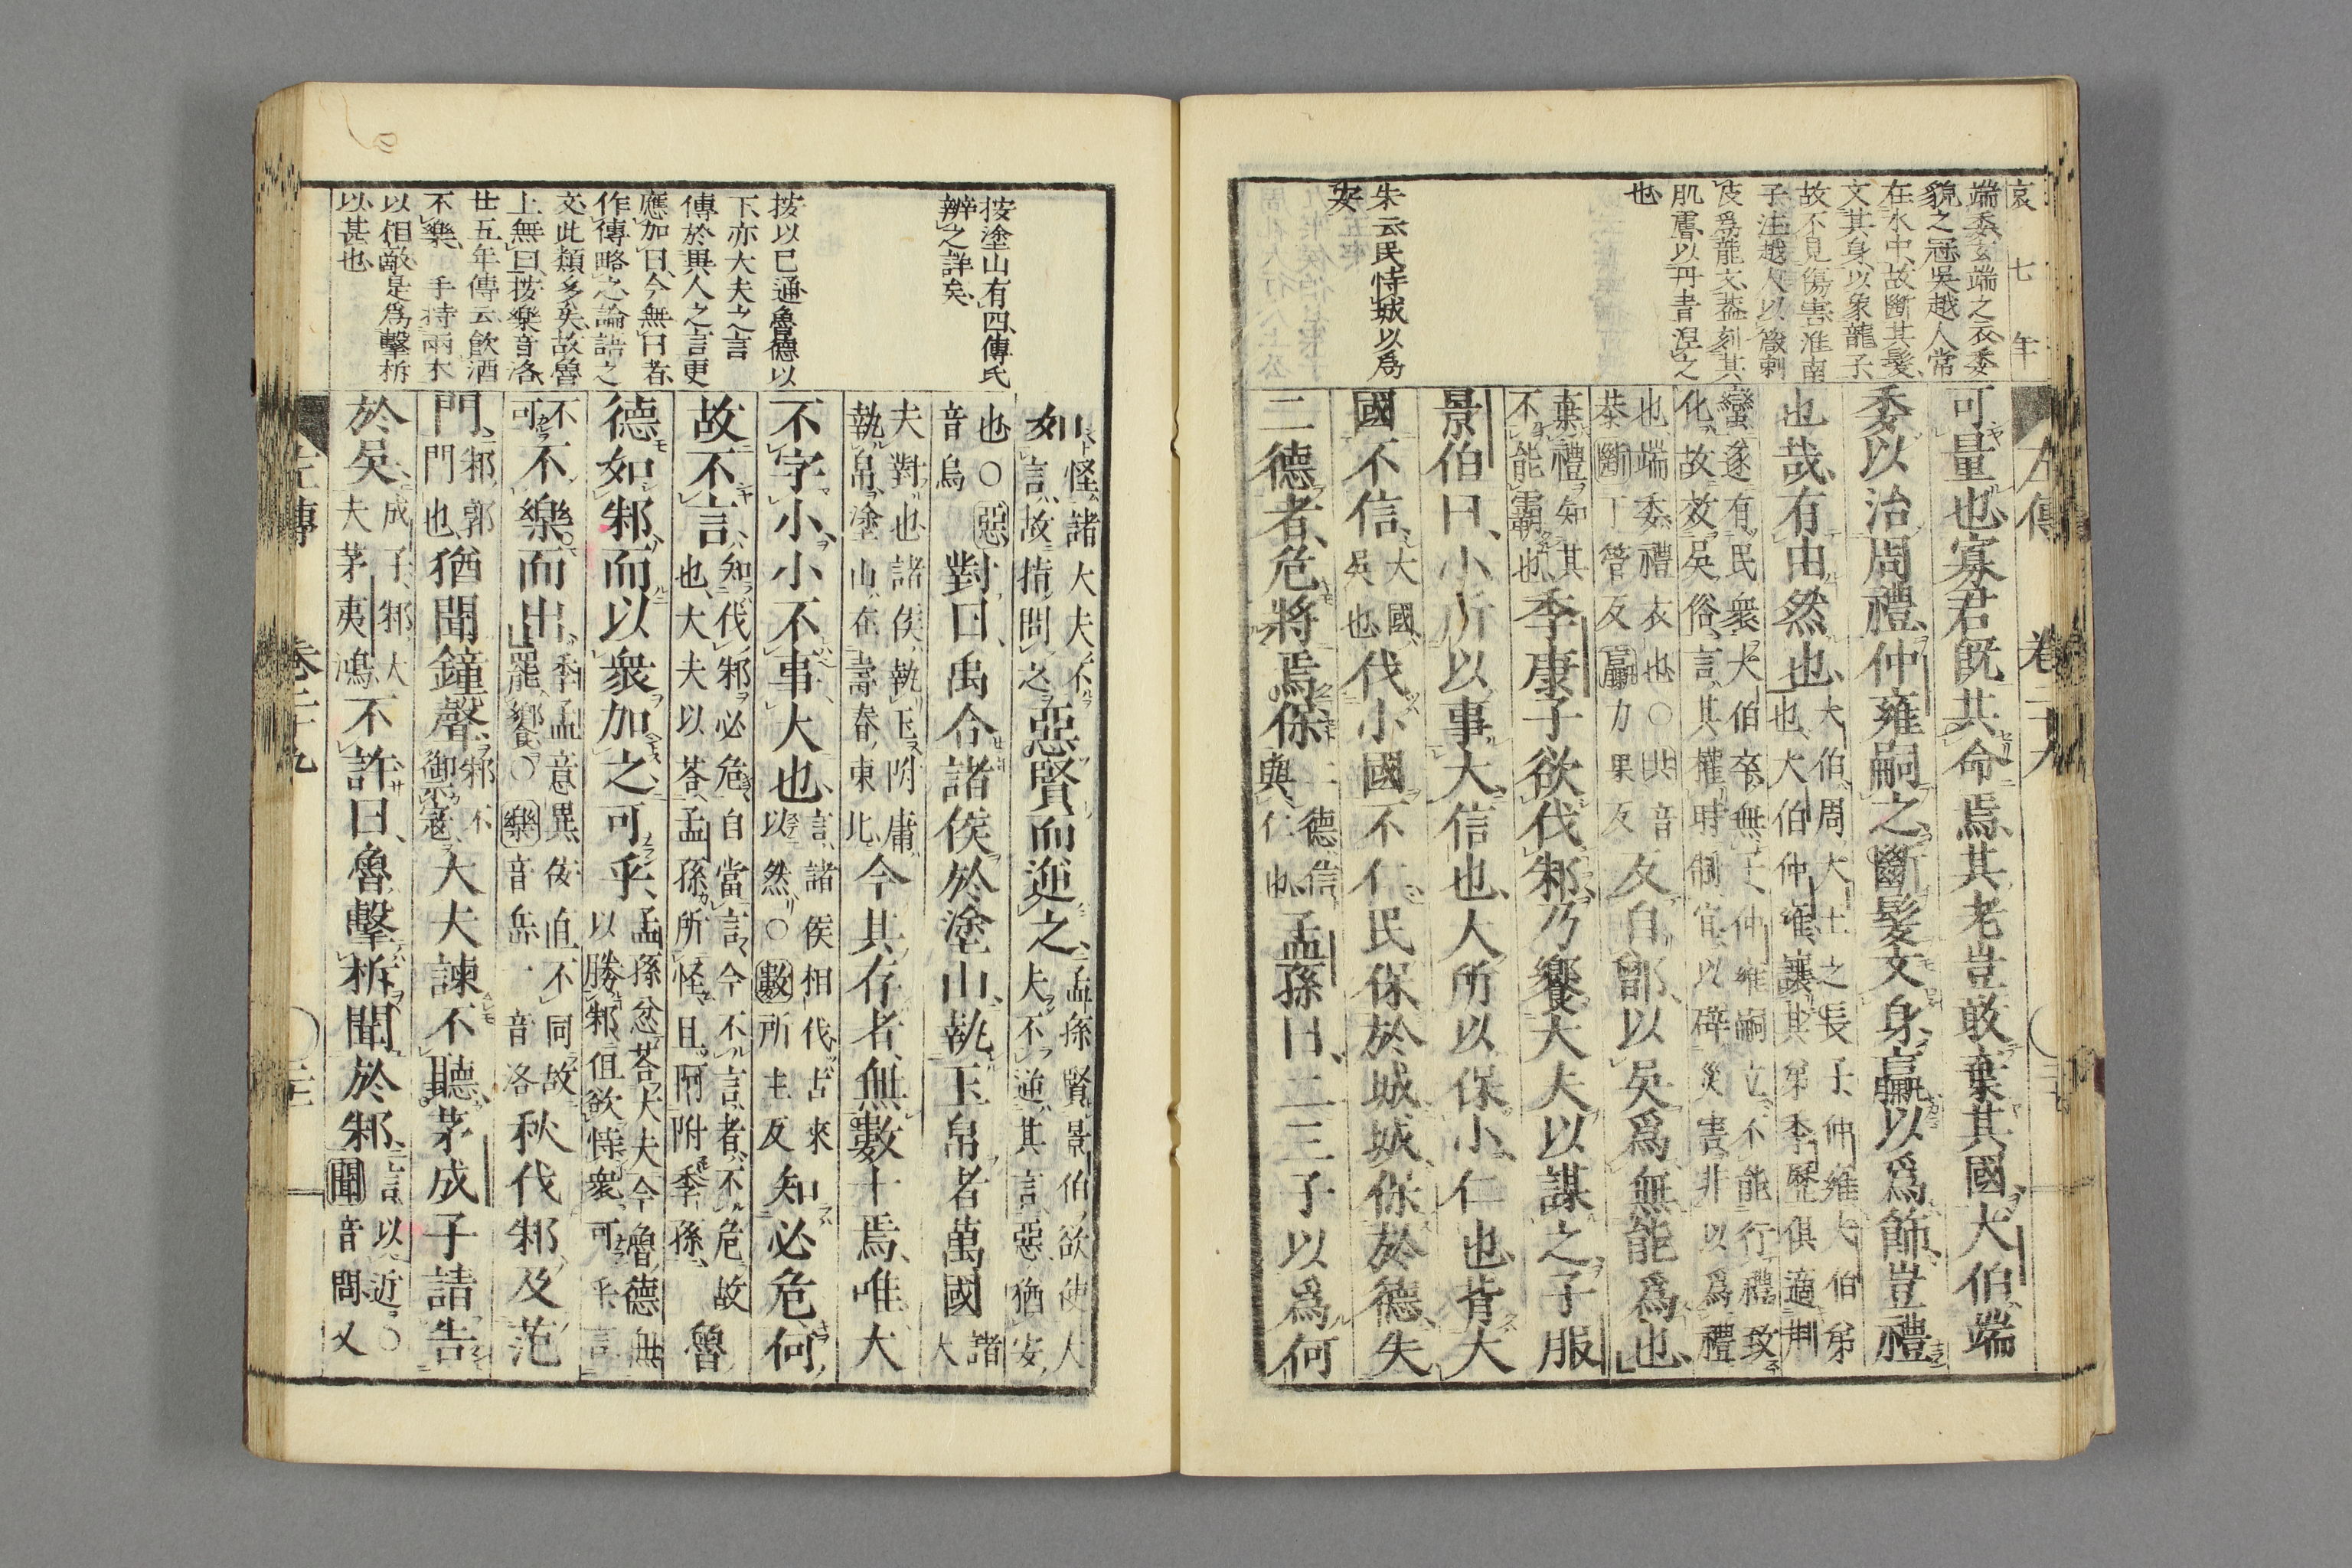 哀 七 年
端委玄端之衣委
貌之冠吳越人常
在水中故斷其髮
文其身以象龍子
故不見傷害淮南
子注越人以箴刺
皮爲龍文蓋刻其
肌膚以丹青涅之
也
朱云民恃城以爲
安
左傳 卷二十九
可量也寡君旣共命焉其老豈敢棄其國大伯端
委以治周禮仲雍嗣之斷髮文身臝以爲飾豈禮
也哉有由然也
大伯周大王之長子仲雍大伯弟
也大伯仲雍讓其弟季歷俱適荆
蠻遂有民衆大伯卒無子仲雍嗣立不能行禮致
化故效吳俗言其權時制宜以辟災害非以爲禮
也端委禮衣也○共音
恭斷丁管反臝力果反
反自鄫以吳爲無能爲也
棄禮知其
不能霸也
季康子欲伐邾乃饗大夫以謀之子服
景伯曰小所以事大信也大所以保小仁也背大
國不信
大國
吳也
伐小國不仁民保於城城保於德失
二德者危將焉保
二德信
與仁也
孟孫曰二三子以爲何
按塗山有四傳氏
辨之詳矣
按以已通魯德以
下亦大夫之言
傳於異人之言更
應加曰今無曰者
作傳略之論語之
文此類多矣故魯
上無曰按樂音洛
廿五年傳云飮酒
不樂 手持兩木
以相敲是爲擊柝
以甚也
如
怪諸大夫不
言故指問之
惡賢而逆之
孟孫賢景伯欲使大
夫不逆其言惡猶安
也○惡
音烏
對曰禹合諸侯於塗山執玉帛者萬國
諸
大
夫對也諸侯執玉附庸
執帛塗山在壽春東北
今其存者無數十焉唯大
不字小小不事大也
言諸侯相伐古來
以然○數所主反
知必危何
故不言
知伐邾必危自當言今不言者不危故
也大夫以荅孟孫所怪且阿附季孫
魯
德如邾而以衆加之可乎
孟孫忿荅大夫今魯德無
以勝邾但欲恃衆可乎言
不
可
不樂而出
季孟意異佞直不同故
罷饗○樂音岳一音洛
秋伐邾及范
門
邾郭
門也
猶聞鐘聲
邾不
御寇
大夫諫不聽茅成子請告
於吳
成子邾大
夫茅夷鴻
不許曰魯擊柝聞於邾
言以近○
聞音問又
左傳 卷二十九